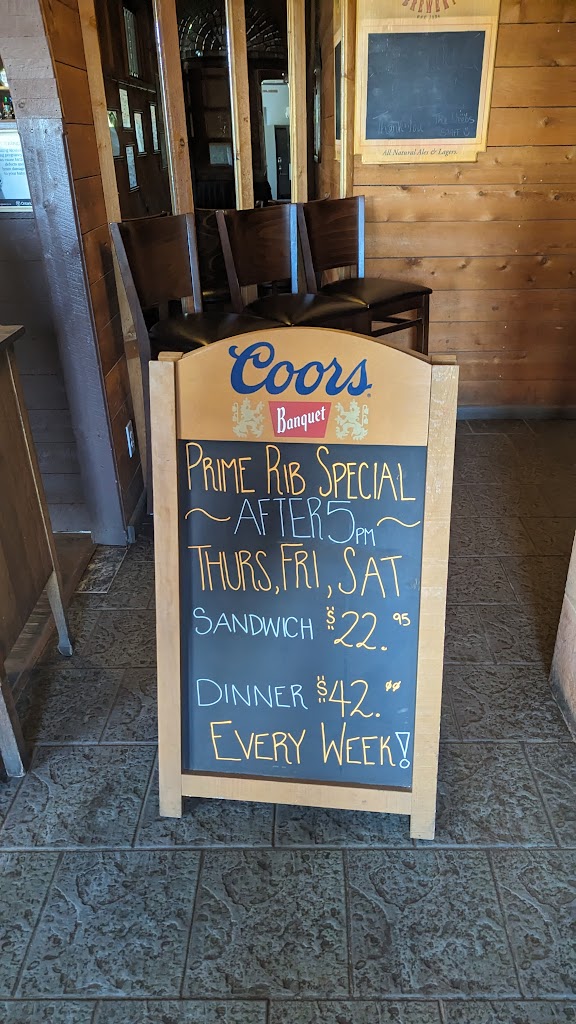 BREWERY
All Natural Ales & Lagers.
Coors
Banquet
PRIME RIB SPECIAL
~ AFTER 5 PM ~
THURS, FRI, SAT
SANDWICH $22.95
DINNER $42.00
EVERY WEEK!